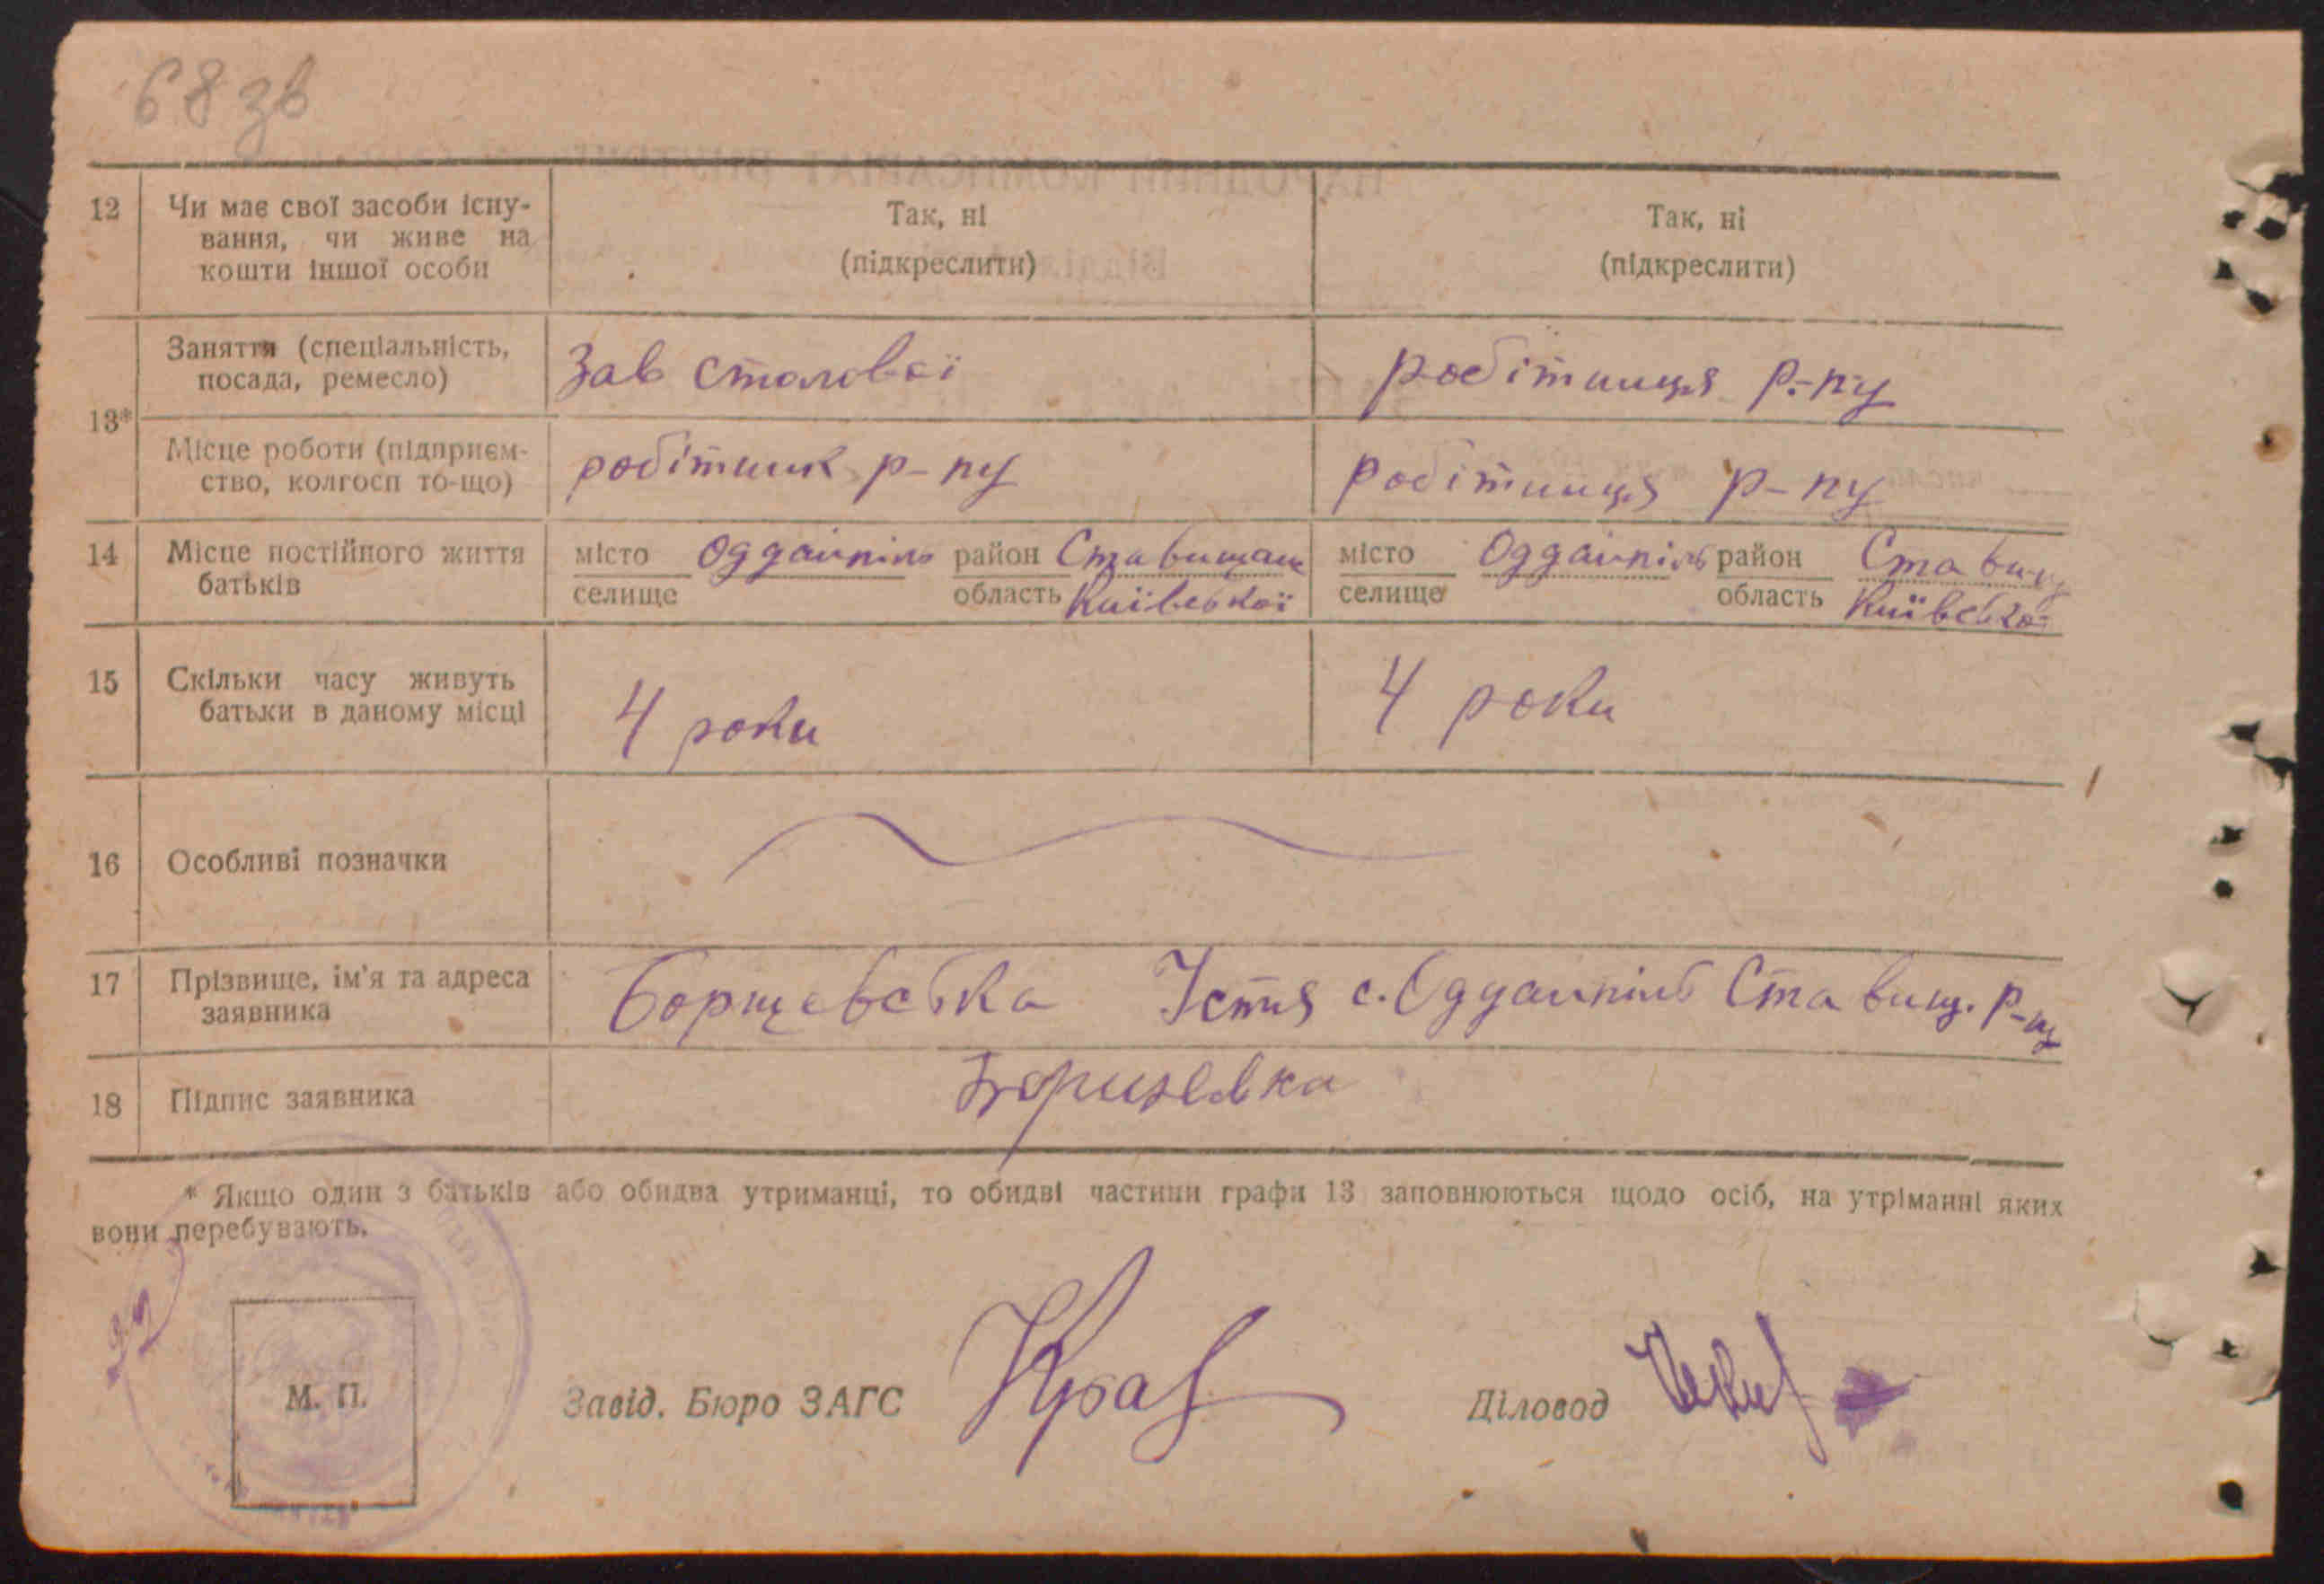 68 зв
12 Чи має свої засоби існу-
вання, чи живе на
кошти іншої особи
Так, ні
(підкреслити)
Так, ні
(підкреслити)
13*
Заняття (спеціальність,
посада, ремесло)
Зав столової
робітниця р-пу
Місце роботи (підприєм-
ство, колгосп то-що)
робітник р-пу
робітниця р-пу
14 Місце постійного життя
батьків
місто Оддаипіль район Ставищан
селище область Київської
місто Оддаипіль район Ставищ
селище область Київсько
15 Скільки часу живуть
батьки в даному місці
4 роки
4 роки
16 Особливі позначки
17 Прізвище, ім'я та адреса
заявника
Борщевська Устя с. Оддаипіль Ставищ. р-ну
18 Підпис заявника
* Якщо один з батьків або обидва утриманці, то обидві частини графи 13 заповнюються щодо осіб, на утріманні яких
вони перебувають.
М. П.
Завід. Бюро ЗАГС
Діловод